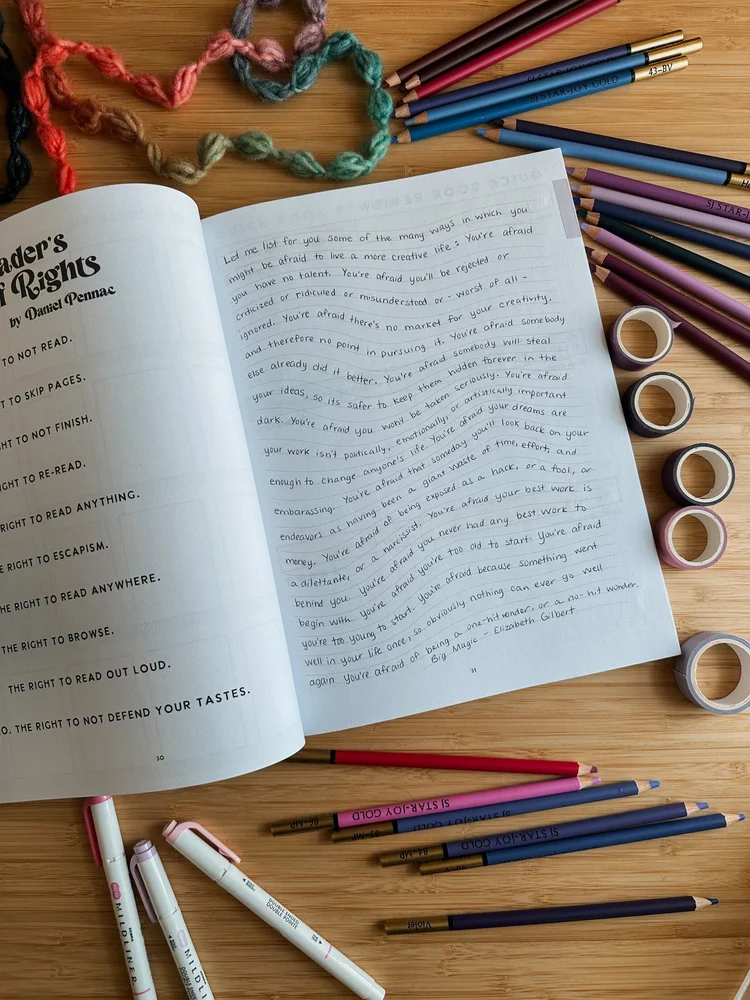 ader's
f Rights
by Daniel Pennac
TO NOT READ.
T TO SKIP PAGES.
HT TO NOT FINISH.
GHT TO RE-READ.
RIGHT TO READ ANYTHING.
E RIGHT TO ESCAPISM.
HE RIGHT TO READ ANYWHERE.
THE RIGHT TO BROWSE.
THE RIGHT TO READ OUT LOUD.
O. THE RIGHT TO NOT DEFEND YOUR TASTES.
30
Let me list for you some of the many ways in which you
might be afraid to live a more creative life: You're afraid
you have no talent. You're afraid you'll be rejected or
criticized or ridiculed or misunderstood or - worst of all -
ignored. You're afraid there's no market for your creativity,
and therefore no point in pursuing it. You're afraid somebody
else already did it better. You're afraid somebody will steal
your ideas, so its safer to keep them hidden forever in the
dark. You're afraid you won't be taken seriously. You're afraid
your work isn't politically, emotionally, or artistically important
enough to change anyone's life. You're afraid your dreams are
embarassing. You're afraid that someday you'll look back on your
endeavors as having been a giant waste of time, effort, and
money. You're afraid of being exposed as a hack, or a fool, or
a dilettante, or a narcissist. You're afraid your best work is
behind you. You're afraid you never had any best work to
begin with. You're afraid you're too old to start. You're afraid
you're too young to start. You're afraid because something went
well in your life once, so obviously nothing can ever go well
again. You're afraid of being a one-hit wonder, or a no-hit wonder.
Big Magic - Elizabeth Gilbert
31
SJ STAR-JOY GOLD
SJ STAR-JOY GOLD
43-BV
SJ STAR-J
86-MP
SJ STAR-JOY GOLD
85-MP
SJ STAR-JOY GOLD
84-MP
SJ STAR-JOY GOLD
SJ STAR-JOY GOLD
Violet
MILDLINER
MILDLI
DOUBLE ENDED
DOUBLE POINTE